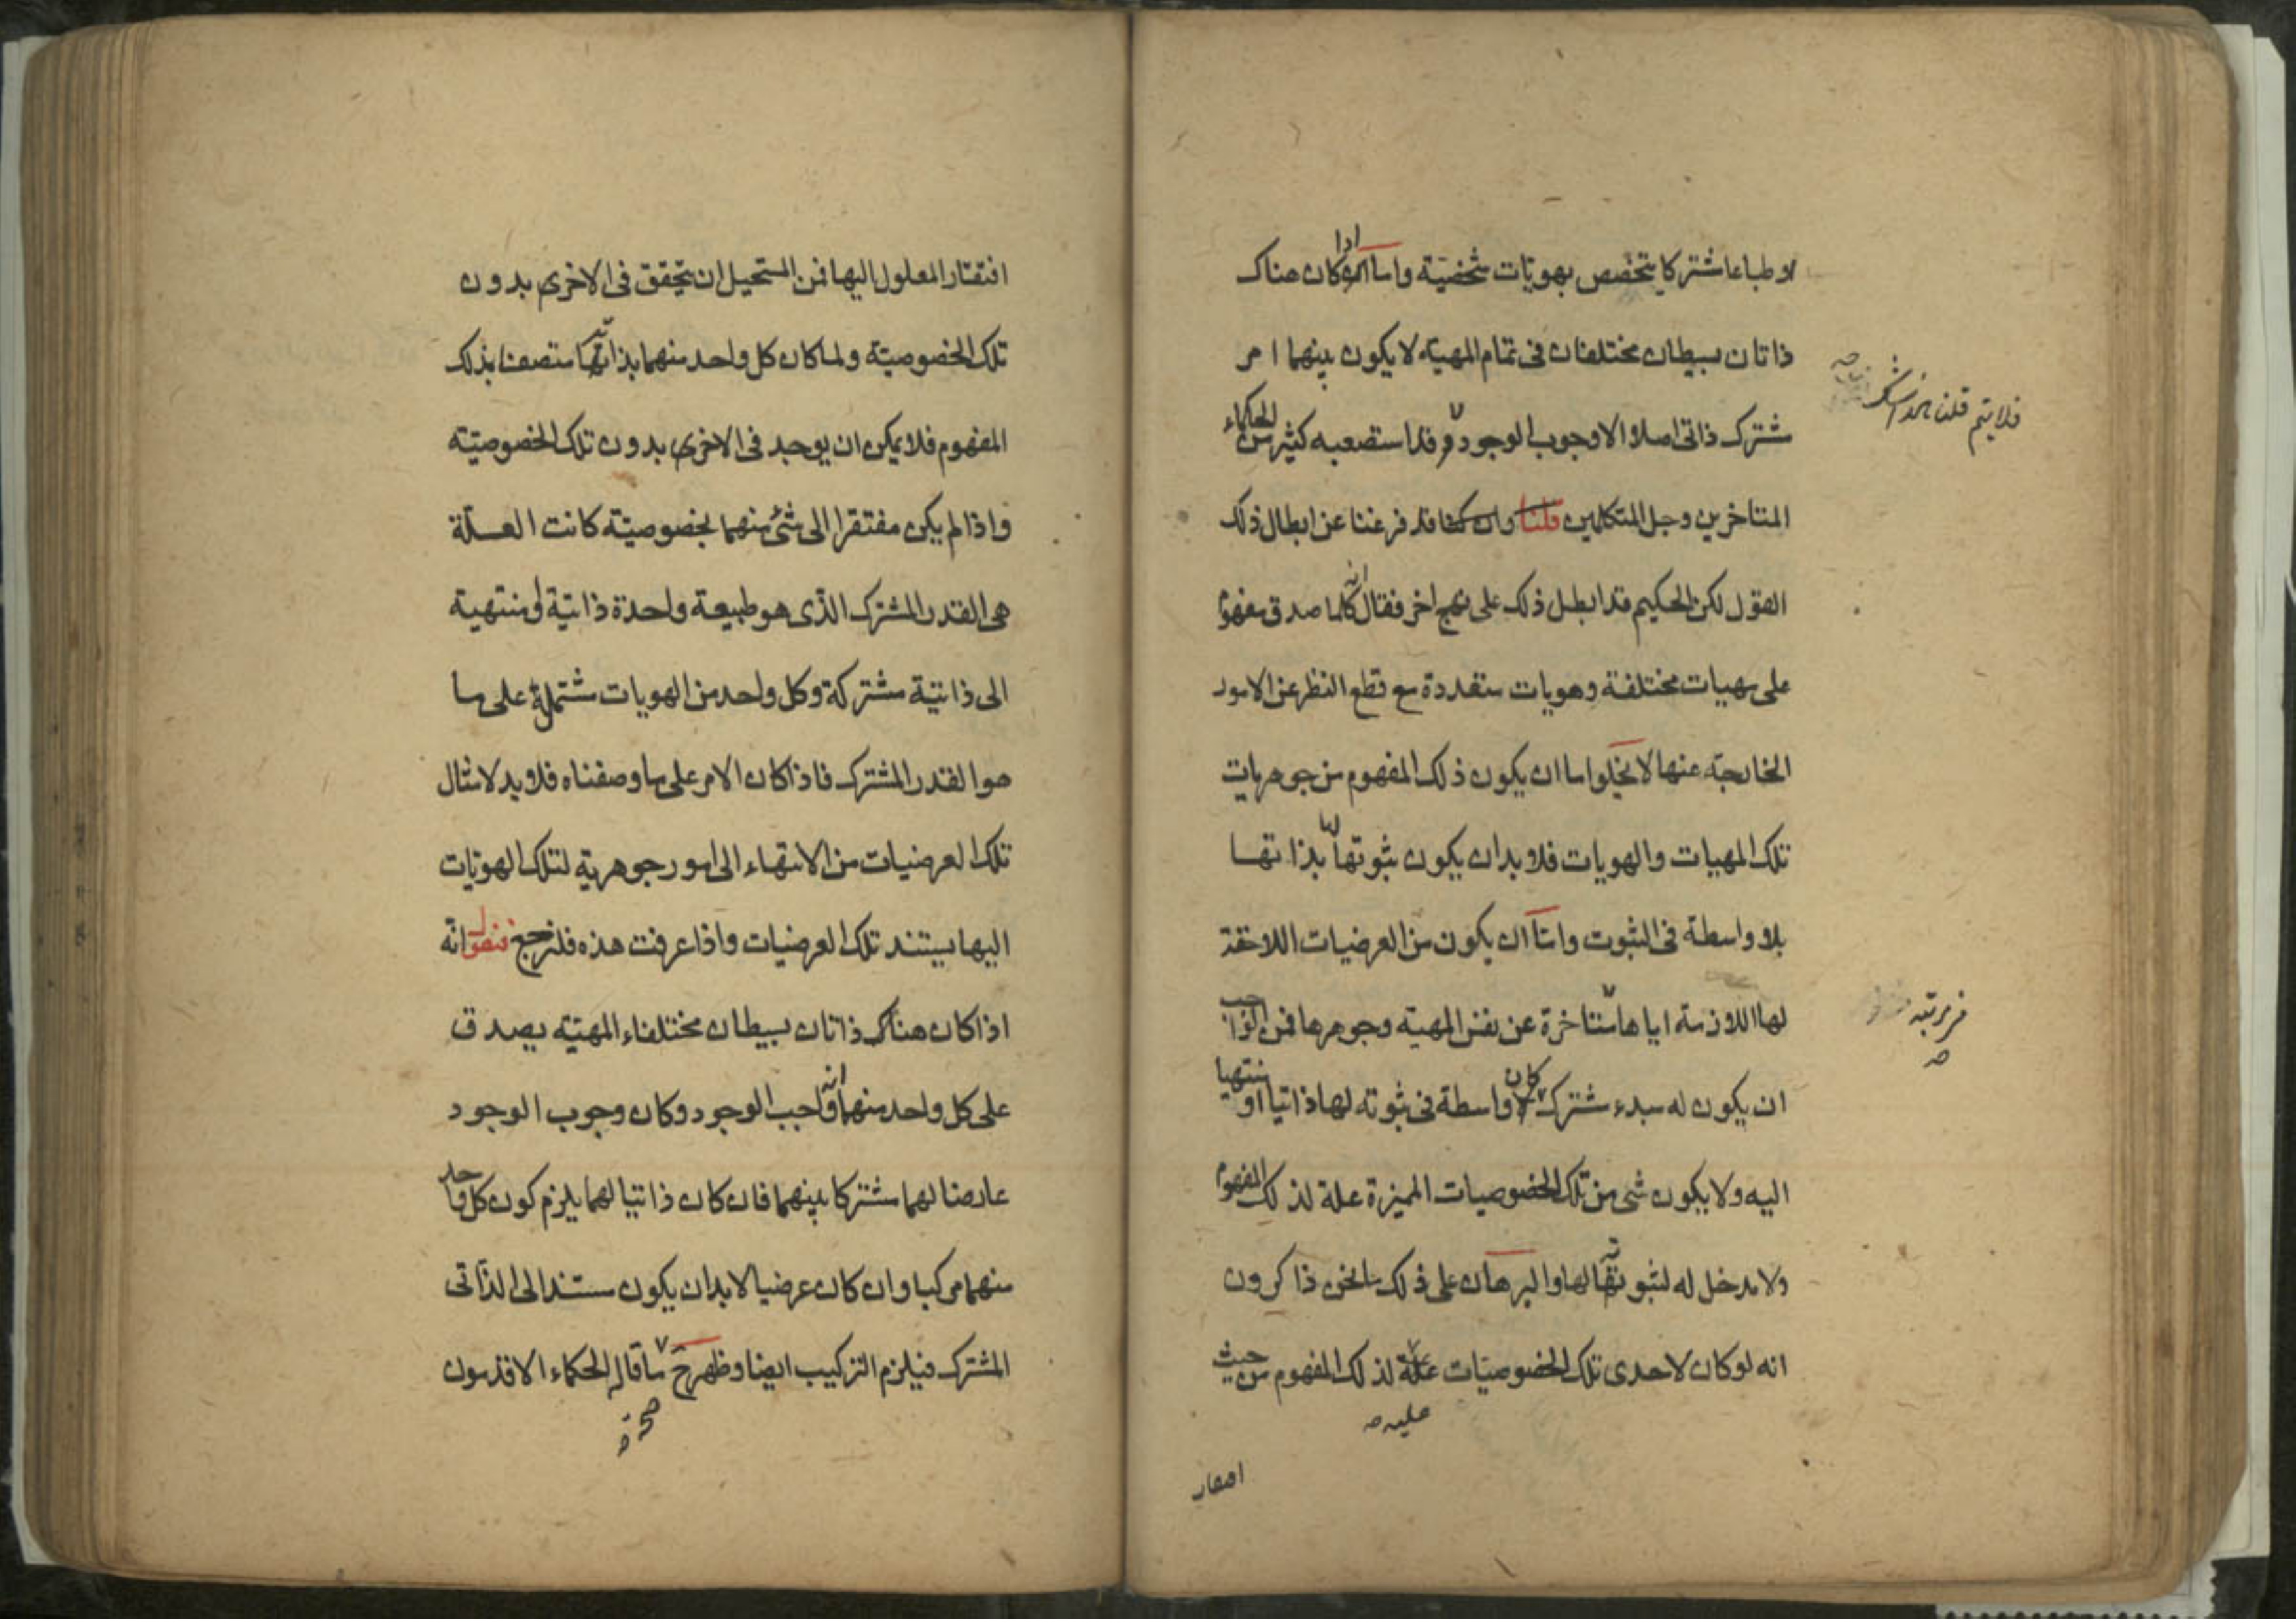 او طباعا مشتركا يتخصص بهويات شخصية واما اذا كان هناك
ذاتان بسيطان مختلفان فى تمام المهية لا يكون بينهما امر
مشترك ذاتى اصلا الا وجوب الوجود وقد استصعبه كثير من الحكماء
المتاخرين وجل المتكلمين قلنا وان كنا قد فرغنا عن ابطال ذلك
القول لكن الحكيم قد ابطل ذلك على نهج اخر فقال انه كلما صدق مفهوم
على مهيات مختلفة وهويات متعددة مع قطع النظر عن الامور
الخارجة عنها لا يخلوا اما ان يكون ذلك المفهوم من جوهريات
تلك المهيات والهويات فلا بد ان يكون ثبوتها لها بذاتها
بلا واسطة فى الثبوت واما ان يكون من العرضيات اللاحقة
لها اللازمة اياها متاخرة عن نفس المهية وجوهرها فمن الواجب
ان يكون له مبدء مشترك كان واسطة فى ثبوته لها ذاتيا او منتهيا
اليه ولا يكون شى من تلك الخصوصيات المميزة علة لذلك المفهوم
ولا مدخل له لثبوتها لها والبرهان على ذلك ما نحن ذاكرون
انه لو كان لاحدى تلك الخصوصيات علية لذلك المفهوم من حيث
فلا يتم قلنا
فى مرتبة
علية صح
افتقار
افتقار المعلول اليها فمن المستحيل ان يتحقق فى الاخرى بدون
تلك الخصوصية ولما كان كل واحد منهما بذاته متصفا بذلك
المفهوم فلا يمكن ان يوجد فى الاخرى بدون تلك الخصوصية
واذا لم يكن مفتقرا الى شئ منهما بخصوصيته كانت العلة
هى القدر المشترك الذى هو طبيعة واحدة ذاتية او منتهية
الى ذاتية مشتركة وكل واحد من الهويات مشتملة على ما
هو القدر المشترك فاذا كان الامر على ما وصفناه فلا بد لامثال
تلك العرضيات من الانتهاء الى امور جوهرية لتلك الهويات
اليها يستند تلك العرضيات واذا عرفت هذه فلنرجع فنقول انه
اذا كان هناك ذاتان بسيطان مختلفاء المهية يصدق
على كل واحد منهما انه واجب الوجود وكان وجوب الوجود
عارضا لهما مشتركا بينهما فان كان ذاتيا لهما يلزم كون كل واحد
منهما مركبا وان كان عرضيا لابد ان يكون مستندا الى الذاتى
المشترك فيلزم التركيب ايضا وظهر ح ما قاله الحكماء الاقدمون